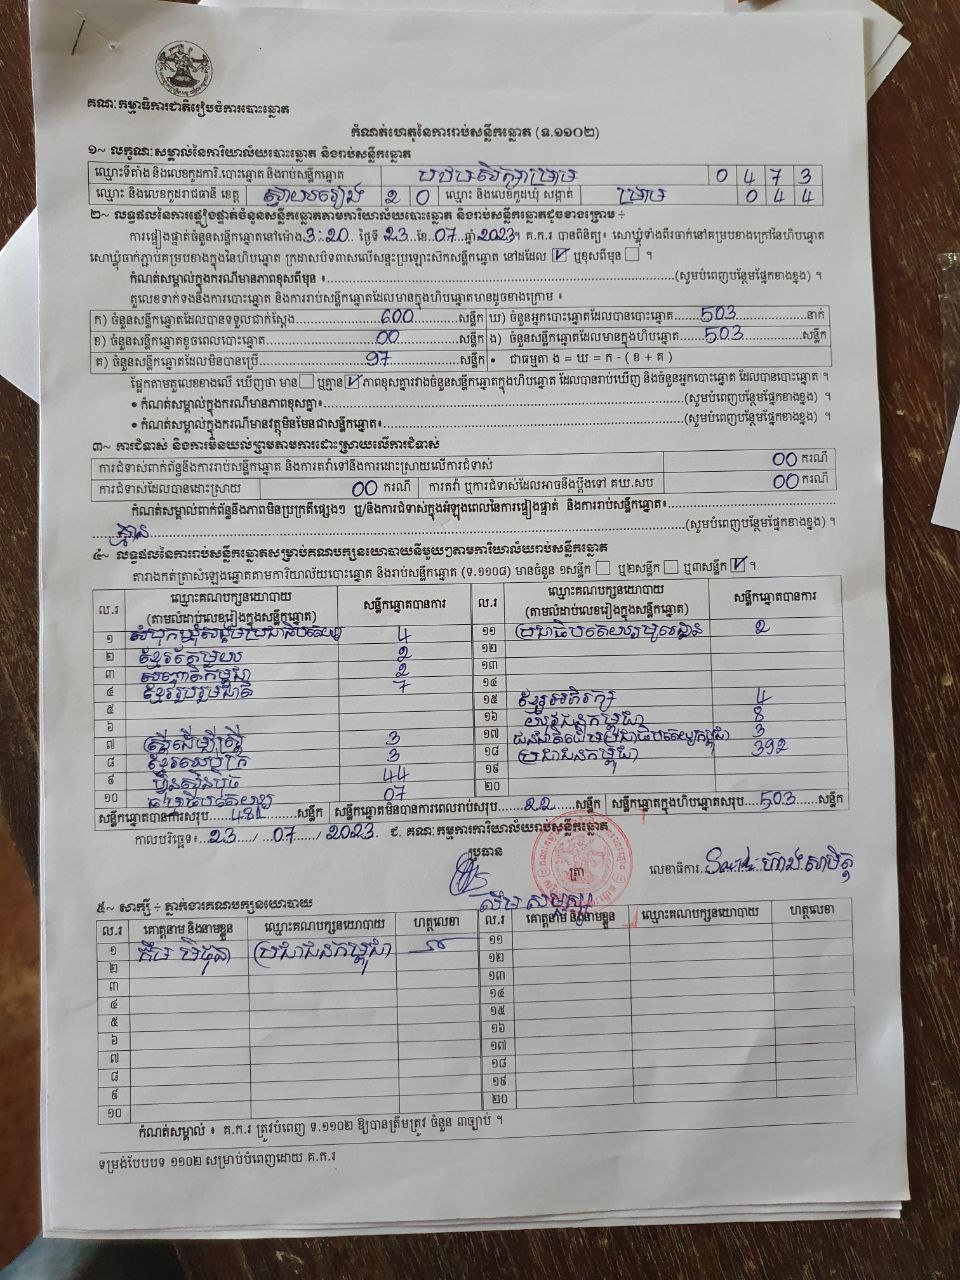 គណៈកម្មាធិការជាតិរៀបចំការបោះឆ្នោត
កំណត់ហេតុនៃការរាប់សន្លឹកឆ្នោត (ទ.១១០២)
១~ លក្ខណៈសម្គាល់នៃការិយាល័យបោះឆ្នោត និងរាប់សន្លឹកឆ្នោត
ឈ្មោះទីតាំង និងលេខកូដការិ.បោះឆ្នោត និងរាប់សន្លឹកឆ្នោត បឋមសិក្សាម្រាម 0 4 7 3
ឈ្មោះ និងលេខកូដរាជធានី ខេត្ត ស្វាយរៀង 2 0 ឈ្មោះ និងលេខកូដឃុំ សង្កាត់ ម្រាម 0 4 4
២~ លទ្ធផលនៃការផ្ទៀងផ្ទាត់ចំនួនសន្លឹកឆ្នោតតាមការិយាល័យបោះឆ្នោត និងរាប់សន្លឹកឆ្នោតដូចខាងក្រោម ÷
ការផ្ទៀងផ្ទាត់ចំនួនសន្លឹកឆ្នោតនៅម៉ោង 3:20 ថ្ងៃទី 23 ខែ 07 ឆ្នាំ 2023។ គ.ក.រ បានពិនិត្យ៖ សោឃ្លុំទាំងពីរចាក់នៅគម្របខាងក្រៅនៃហិបឆ្នោត
សោឃ្លុំចាក់ភ្ជាប់គម្របខាងក្នុងនៃហិបឆ្នោត ក្រដាសបិទពាសលើសន្ទះប្រឡោះសឹកសន្លឹកឆ្នោត នៅដដែល ☑ ឬខុសពីមុន ☐ ។
កំណត់សម្គាល់ក្នុងករណីមានភាពខុសពីមុន ៖ (សូមបំពេញបន្ថែមផ្នែកខាងខ្នង) ។
តួលេខទាក់ទងនឹងការបោះឆ្នោត និងការរាប់សន្លឹកឆ្នោតដែលមានក្នុងហិបឆ្នោតមានដូចខាងក្រោម ៖
ក) ចំនួនសន្លឹកឆ្នោតដែលបានទទួលជាក់ស្តែង 600 សន្លឹក ឃ) ចំនួនអ្នកបោះឆ្នោតដែលបានបោះឆ្នោត 503 នាក់
ខ) ចំនួនសន្លឹកឆ្នោតខូចពេលបោះឆ្នោត 00 សន្លឹក ង) ចំនួនសន្លឹកឆ្នោតដែលមានក្នុងហិបឆ្នោត 503 សន្លឹក
គ) ចំនួនសន្លឹកឆ្នោតដែលមិនបានប្រើ 97 សន្លឹក • ជាធម្មតា ង = ឃ = ក - ( ខ + គ )
ផ្អែកតាមតួលេខខាងលើ ឃើញថា មាន ☐ ឬគ្មាន ☑ ភាពខុសគ្នារវាងចំនួនសន្លឹកឆ្នោតក្នុងហិបឆ្នោត ដែលបានរាប់ឃើញ និងចំនួនអ្នកបោះឆ្នោត ដែលបានបោះឆ្នោត ។
• កំណត់សម្គាល់ក្នុងករណីមានភាពខុសគ្នា៖ (សូមបំពេញបន្ថែមផ្នែកខាងខ្នង) ។
• កំណត់សម្គាល់ក្នុងករណីមានវត្ថុមិនមែនជាសន្លឹកឆ្នោត៖ (សូមបំពេញបន្ថែមផ្នែកខាងខ្នង) ។
៣~ ការជំទាស់ និងការមិនយល់ព្រមតាមការដោះស្រាយលើការជំទាស់
ការជំទាស់ពាក់ព័ន្ធនឹងការរាប់សន្លឹកឆ្នោត និងការតវ៉ាទៅនឹងការដោះស្រាយលើការជំទាស់ 00 ករណី
ការជំទាស់ដែលបានដោះស្រាយ 00 ករណី ការតវ៉ា ឬការជំទាស់ដែលអាចនឹងប្តឹងទៅ គឃ.សប 00 ករណី
កំណត់សម្គាល់ពាក់ព័ន្ធនឹងភាពមិនប្រក្រតីផ្សេងៗ ឬ/និងការជំទាស់ក្នុងអំឡុងពេលនៃការផ្ទៀងផ្ទាត់ និងការរាប់សន្លឹកឆ្នោត៖
គ្មាន (សូមបំពេញបន្ថែមផ្នែកខាងខ្នង) ។
៤~ លទ្ធផលនៃការរាប់សន្លឹកឆ្នោតសម្រាប់គណបក្សនយោបាយនីមួយៗតាមការិយាល័យរាប់សន្លឹកឆ្នោត
តារាងកត់ត្រាសំឡេងឆ្នោតតាមការិយាល័យបោះឆ្នោត និងរាប់សន្លឹកឆ្នោត (ទ.១១០៨) មានចំនួន ១សន្លឹក ☐ ឬ២សន្លឹក ☐ ឬ៣សន្លឹក ☑ ។
ល.រ ឈ្មោះគណបក្សនយោបាយ (តាមលំដាប់លេខរៀងក្នុងសន្លឹកឆ្នោត) សន្លឹកឆ្នោតបានការ ល.រ ឈ្មោះគណបក្សនយោបាយ (តាមលំដាប់លេខរៀងក្នុងសន្លឹកឆ្នោត) សន្លឹកឆ្នោតបានការ
១ សំបុកឃ្មុំសង្គមប្រជាធិបតេយ្យ 4 ១១ ប្រជាធិបតេយ្យមូលដ្ឋាន 2
២ ខ្មែរតែមួយ 2 ១២
៣ សញ្ជាតិកម្ពុជា 2 ១៣
៤ ខ្មែររួបរួមជាតិ 7 ១៤
៥ ១៥ ខ្មែរអភិរក្ស 4
៦ ១៦ យុវជនកម្ពុជា 8
៧ ស្ត្រីដើម្បីស្ត្រី 3 ១៧ ជនជាតិដើមប្រជាធិបតេយ្យកម្ពុជា 3
៨ ខ្មែរឈប់ក្រ 3 ១៨ ប្រជាជនកម្ពុជា 392
៩ ហ្វ៊ុនស៊ិនប៉ិច 44 ១៩
១០ ធម្មាធិបតេយ្យ 07 ២០
សន្លឹកឆ្នោតបានការសរុប 481 សន្លឹក សន្លឹកឆ្នោតមិនបានការពេលរាប់សរុប 22 សន្លឹក សន្លឹកឆ្នោតក្នុងហិបឆ្នោតសរុប 503 សន្លឹក
កាលបរិច្ឆេទ៖ 23 / 07 / 2023 ជ. គណៈកម្មការការិយាល័យរាប់សន្លឹកឆ្នោត
ប្រធាន
ត្រា លេខាធិការ
៥~ សាក្សី ÷ ភ្នាក់ងារគណបក្សនយោបាយ
ល.រ គោត្តនាម និងនាមខ្លួន ឈ្មោះគណបក្សនយោបាយ ហត្ថលេខា ល.រ គោត្តនាម និងនាមខ្លួន ឈ្មោះគណបក្សនយោបាយ ហត្ថលេខា
១ ប្រជាជនកម្ពុជា ១១
២ ១២
៣ ១៣
៤ ១៤
៥ ១៥
៦ ១៦
៧ ១៧
៨ ១៨
៩ ១៩
១០ ២០
កំណត់សម្គាល់ ៖ គ.ក.រ ត្រូវបំពេញ ទ.១១០២ ឱ្យបានត្រឹមត្រូវ ចំនួន ៣ច្បាប់ ។
ទម្រង់បែបបទ ១១០២ សម្រាប់បំពេញដោយ គ.ក.រ